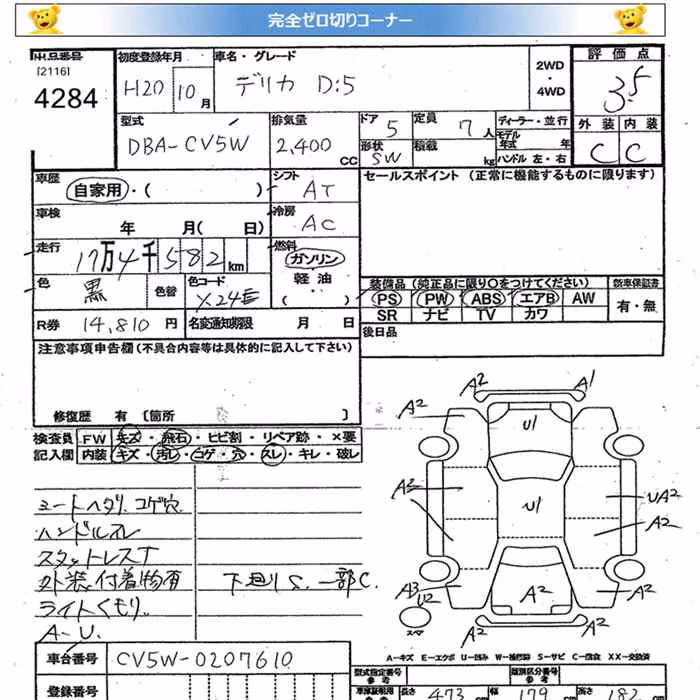 完全ゼロ切りコーナー
出品番号
[2116]
4284
初度登録年月
H20 10月
車名・グレード
デリカ D:5
2WD
・
4WD
評価点
3.5
型式
DBA-CV5W
排気量
2,400 CC
ドア 5
形状 SW
定員 7人
積載 kg
ディーラー・並行
モデル年式 年
ハンドル 左・右
外装 内装
C C
車歴
自家用・( )
シフト
AT
セールスポイント (正常に機能するものに限ります)
車検
年 月( 日)
冷房
AC
走行
17万4千582km
燃料
ガソリン
軽油
( )
色
黒
色替
色コード
X24E
装備品 (純正品に限り○をつけてください)
PS PW ABS エアB AW
SR ナビ TV カワ
新車保証書
有・無
R券 14,810円
名変通知期限 月 日
後日品
注意事項申告欄 (不具合内容等は具体的に記入して下さい)
修復歴 有 [箇所 ]
検査員記入欄
FW キズ・飛石・ヒビ割・リペア跡・×要
内装 キズ・汚レ・コゲ・穴・スレ・キレ・破レ
シートヘタリ コゲ穴
ハンドルスレ
スタットレスT
外装付着物有
下廻りS、一部C.
ライトくもり.
A-U.
A2 A1
A2 U1 A2
A2 U1 UA2
A2
A3
U2 A2 A2
スペア
A2 A2
A-キズ E-エクボ U-凹み W-補修跡 S-サビ C-腐食 XX-交換済
車台番号 CV5W-0207610
登録番号
型式指定番号
参考
類別区分番号
参考
長さ 473 cm 幅 179 cm 高さ 182 cm